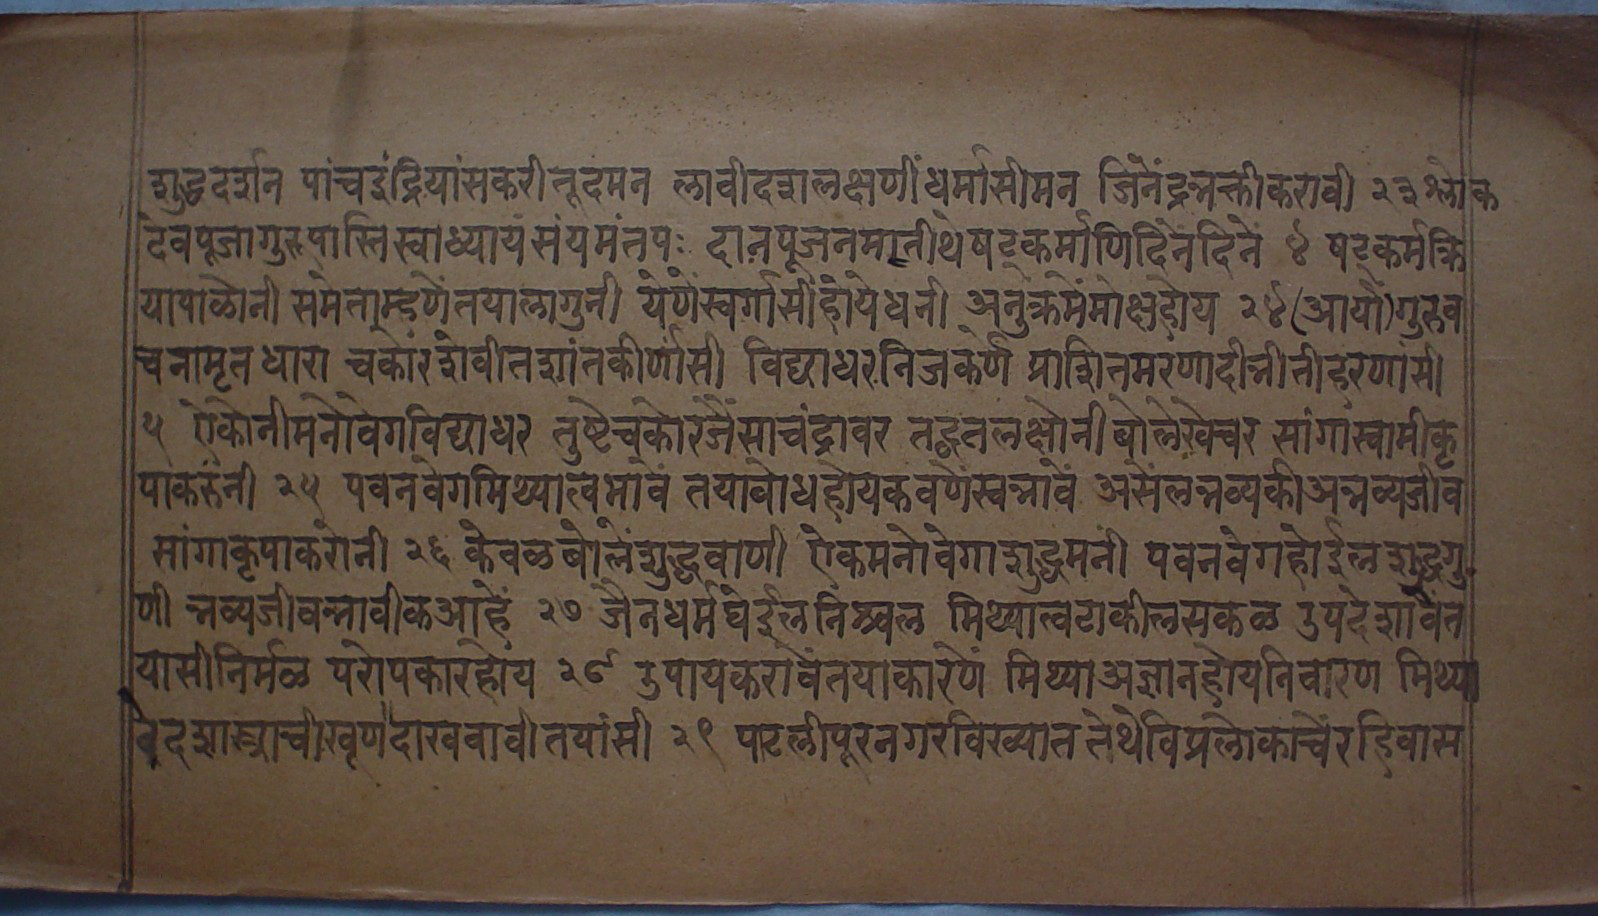 शुद्धदर्शन पांचइंद्रियांसकरीतूदमन लावीदशलक्षणींधर्मासीमन जिनेंद्रभक्तीकरावी २३ श्लोक
देवपूजागुरुपास्तिस्वाध्यायंसंयमंतपः दानपूजनमातीथेषट्कर्माणिदिनेंदिनें ४ षट्कर्मक्रि
यापाळोनी समेताम्हणेंतयालागुनी येणेंस्वर्गासींहोयेधनी अनुक्रमेंमोक्षहोय २४ (आर्या) गुरुव
चनामृतधारा चकोरशेवीतशांतकीर्णासी विद्याधरनिजकर्णे प्राशितमरणादीभीतीहरणासी
५ ऐकोनीमनोवेगविद्याधर तुष्टेचकोरजैंसाचंद्रावर तद्वतलक्षोनीबोलेखेचर सांगास्वामीकृ
पाकरुंनी २५ पवनवेगमिथ्यात्वभावें तयाबोधहोयकवणेंस्वभावें असेंलभव्यकीअभव्यजीव
सांगाकृपाकरोनी २६ केवळबोलेंशुद्धवाणी ऐकमनोवेगाशुद्धमनीं पवनवेगहोईलशुद्धगु
णी भव्यजीवभावीकआहे २७ जैनधर्मघेईलनिश्चल मिथ्यात्वटाकीलसकळ उपदेशावेंत
यासीनिर्मळ परोपकारहोय २८ उपायकरावेंतयाकारणें मिथ्याअज्ञानहोयनिवारण मिथ्या
वेदशास्त्राचीखूणदाखवावीतयांसी २९ पाटलीपूरनगरविख्यात तेथेंविप्रलोकाचेंरहिवास